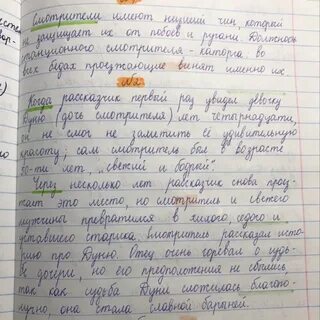 Смотрители имеют низший чин, который
не защищает их от побоев и ругани. Должность
станционного смотрителя - каторга, во
всех бедах проезжающие винят именно их.
№2
Когда рассказчик первый раз увидел девочку
Дуню (дочь смотрителя) лет четырнадцати,
он не смог не заметить её удивительную
красоту; сам смотритель был в возрасте
50-ти лет, "свежий и бодрый".
Через несколько лет рассказчик снова проез-
жает это место, но смотритель из свежего
мужчины превратился в хилого, седого и
уставшего старика. Смотритель рассказал исто-
рию про Дуню. Отец очень горевал о судь-
бе дочери, но его предположения не сбылись,
так как судьба Дуни сложилась благопо-
лучно, она стала славной барыней.